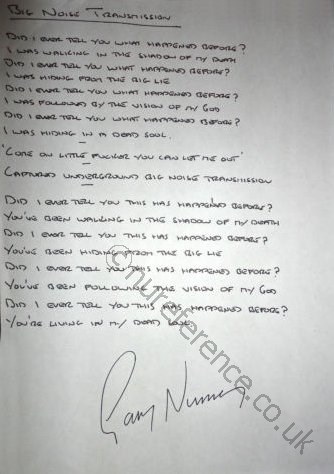 BIG NOISE TRANSMISSION
DID I EVER TELL YOU WHAT HAPPENED BEFORE?
I WAS WALKING IN THE SHADOW OF MY DEATH
DID I EVER TELL YOU WHAT HAPPENED BEFORE?
I WAS HIDING FROM THE BIG LIE
DID I EVER TELL YOU WHAT HAPPENED BEFORE?
I WAS FOLLOWED BY THE VISION OF MY GOD
DID I EVER TELL YOU WHAT HAPPENED BEFORE?
I WAS HIDING IN A DEAD SOUL.
'COME ON LITTLE FUCKER YOU CAN LET ME OUT'
CAPTURED UNDERGROUND BIG NOISE TRANSMISSION
DID I EVER TELL YOU THIS HAS HAPPENED BEFORE?
YOU'VE BEEN WALKING IN THE SHADOW OF MY DEATH
DID I EVER TELL YOU THIS HAS HAPPENED BEFORE?
YOU'VE BEEN HIDING FROM THE BIG LIE
DID I EVER TELL YOU THIS HAS HAPPENED BEFORE?
YOU'VE BEEN FOLLOWING THE VISION OF MY GOD
DID I EVER TELL YOU THIS HAS HAPPENED BEFORE?
YOU'RE LIVING IN MY DEAD SOUL.
Gary Numan
©nureference.co.uk